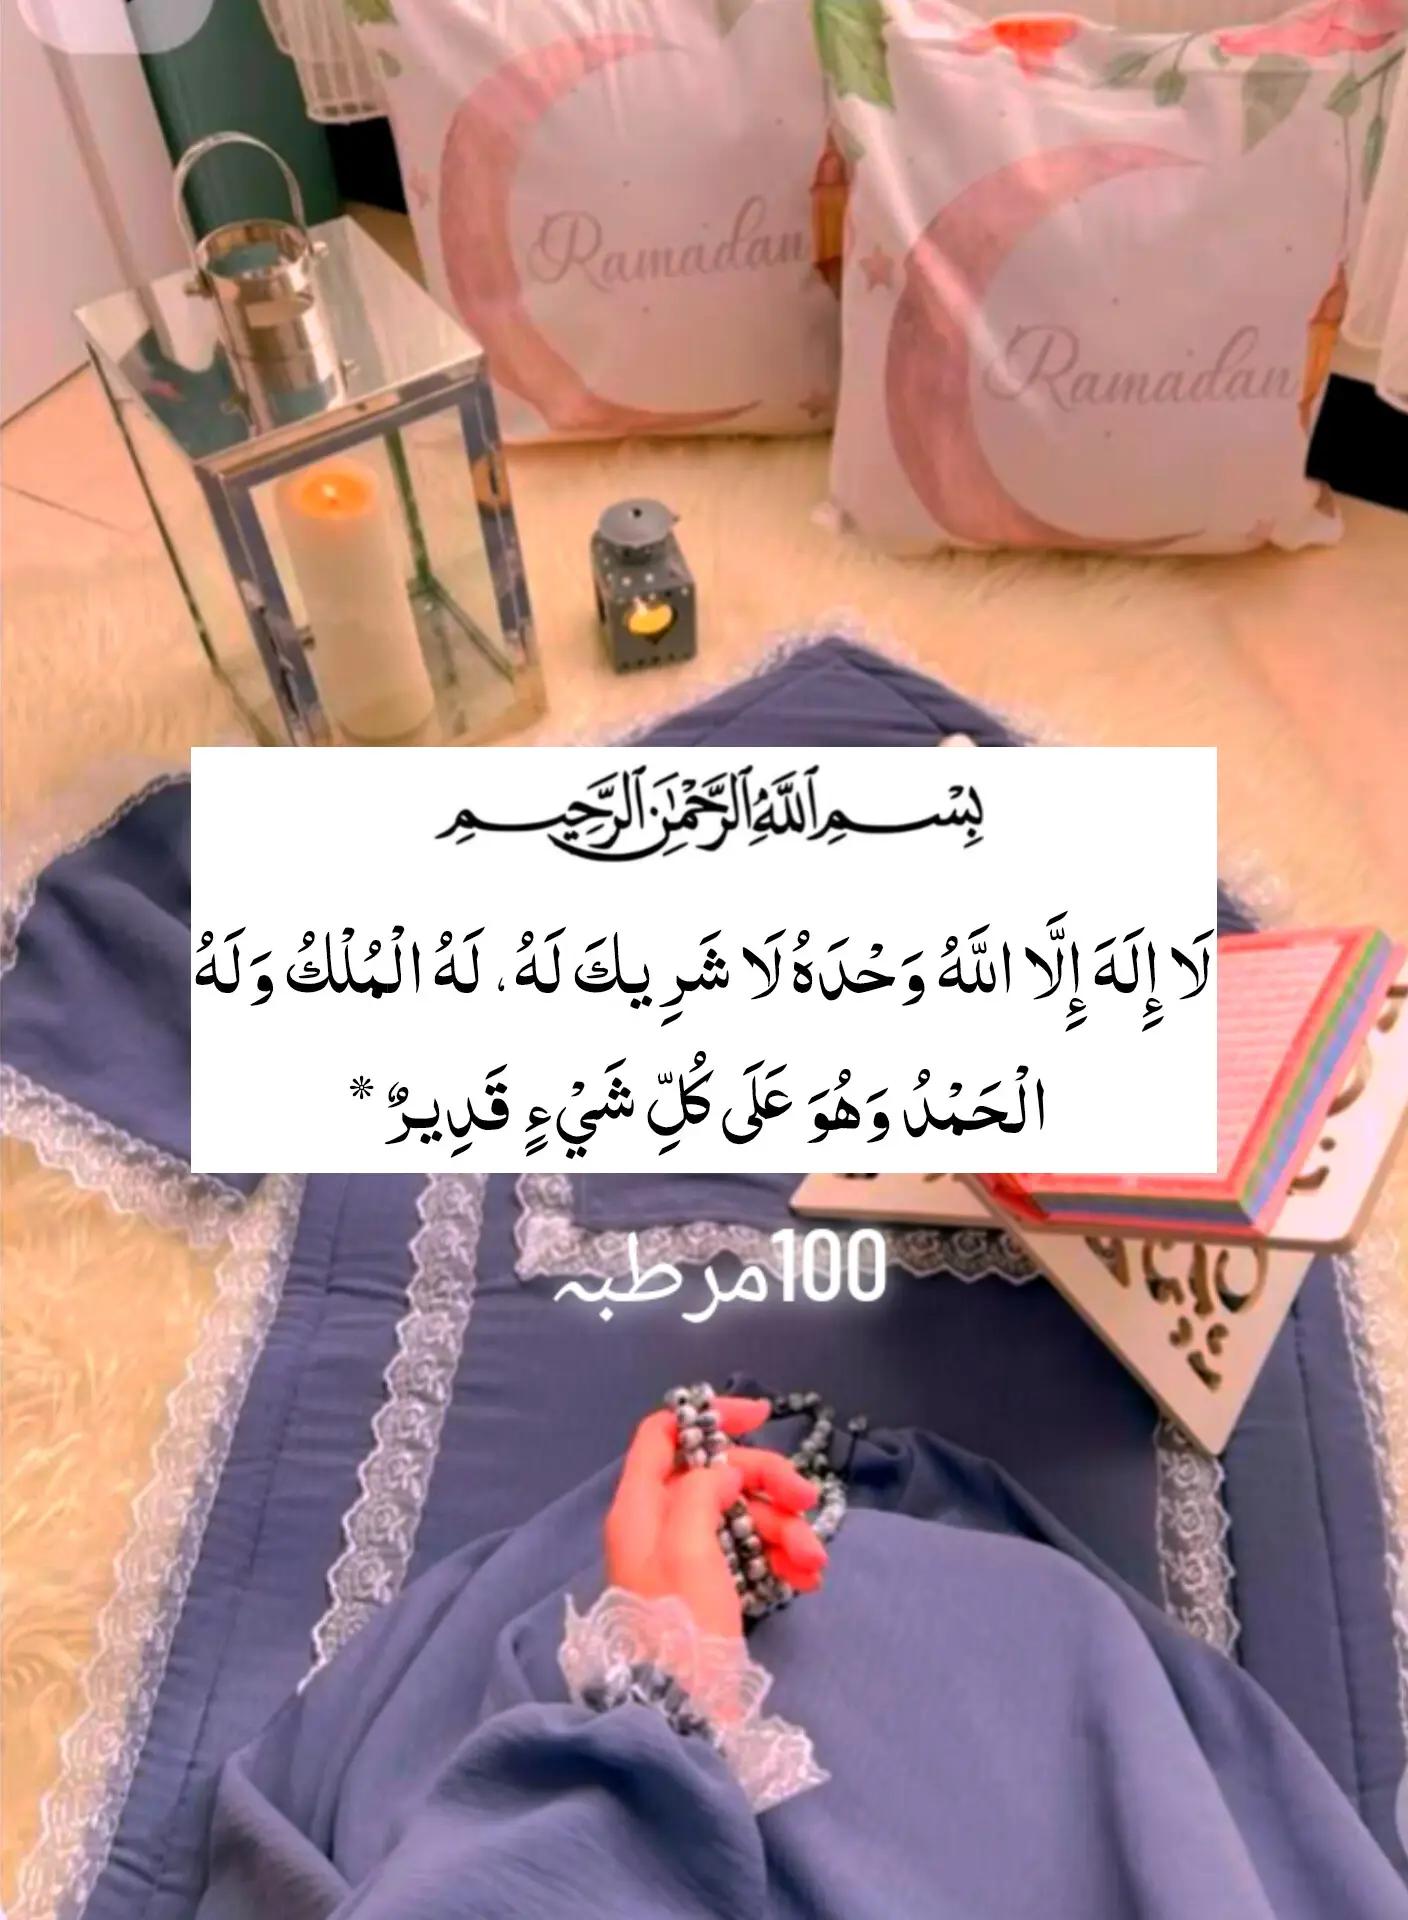 Ramadan
Ramadan
بِسْمِ ٱللَّهِ ٱلرَّحْمَٰنِ ٱلرَّحِيمِ
لَا إِلَهَ إِلَّا اللَّهُ وَحْدَهُ لَا شَرِيكَ لَهُ، لَهُ الْمُلْكُ وَلَهُ
الْحَمْدُ وَهُوَ عَلَى كُلِّ شَيْءٍ قَدِيرٌ *
100مرطبہ